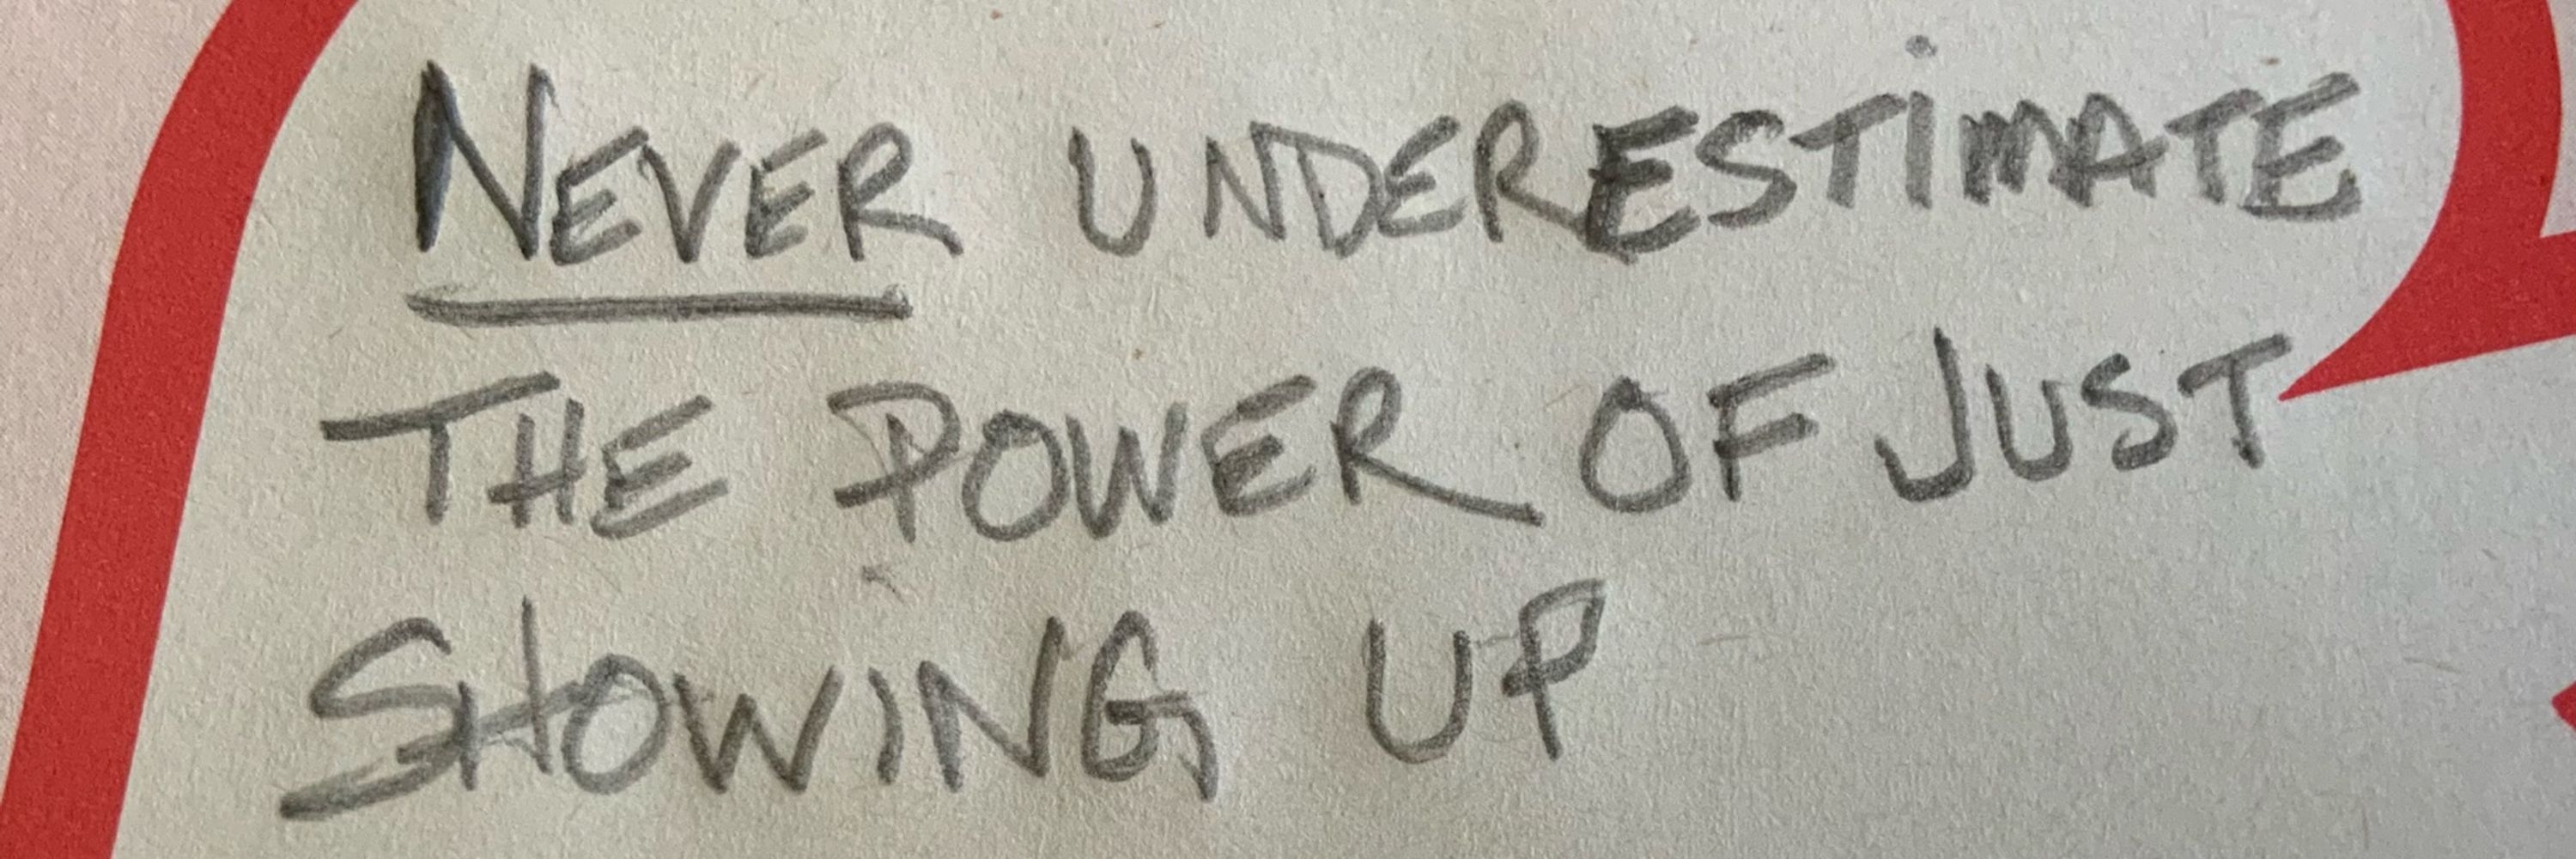 NEVER UNDERESTiMATE
THE POWER OF JUST
SHOWING UP